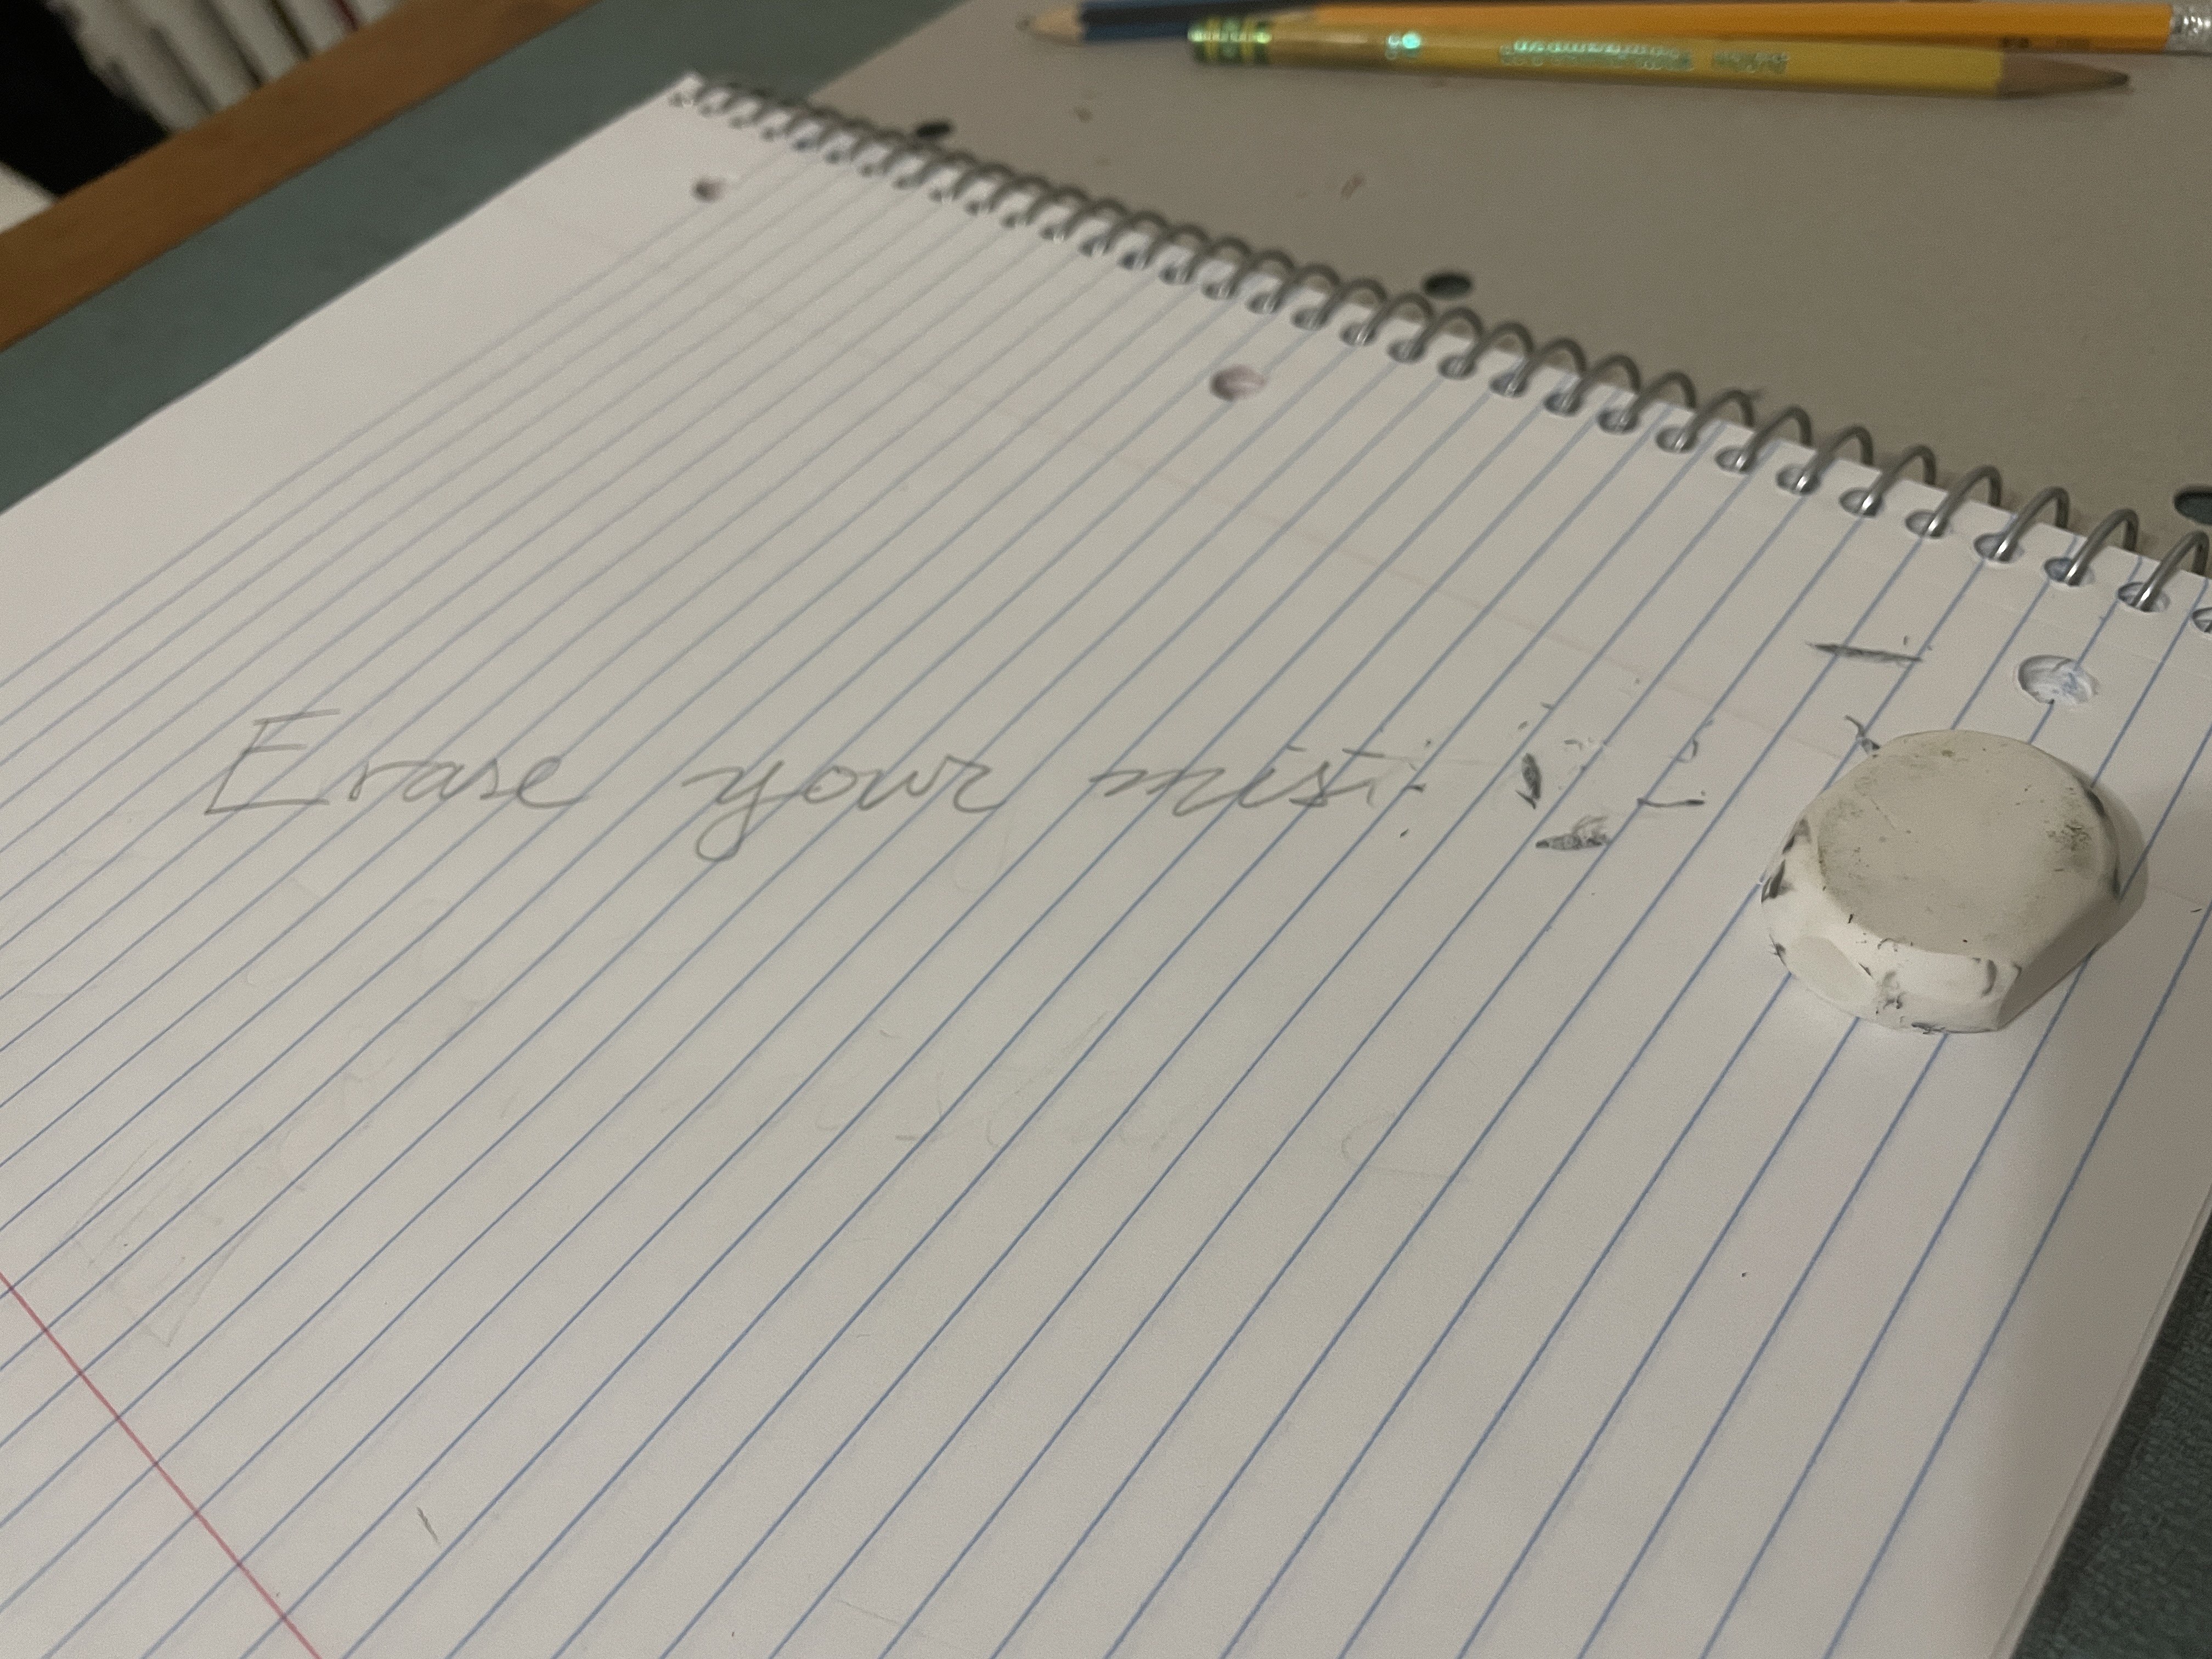 Erase your mist